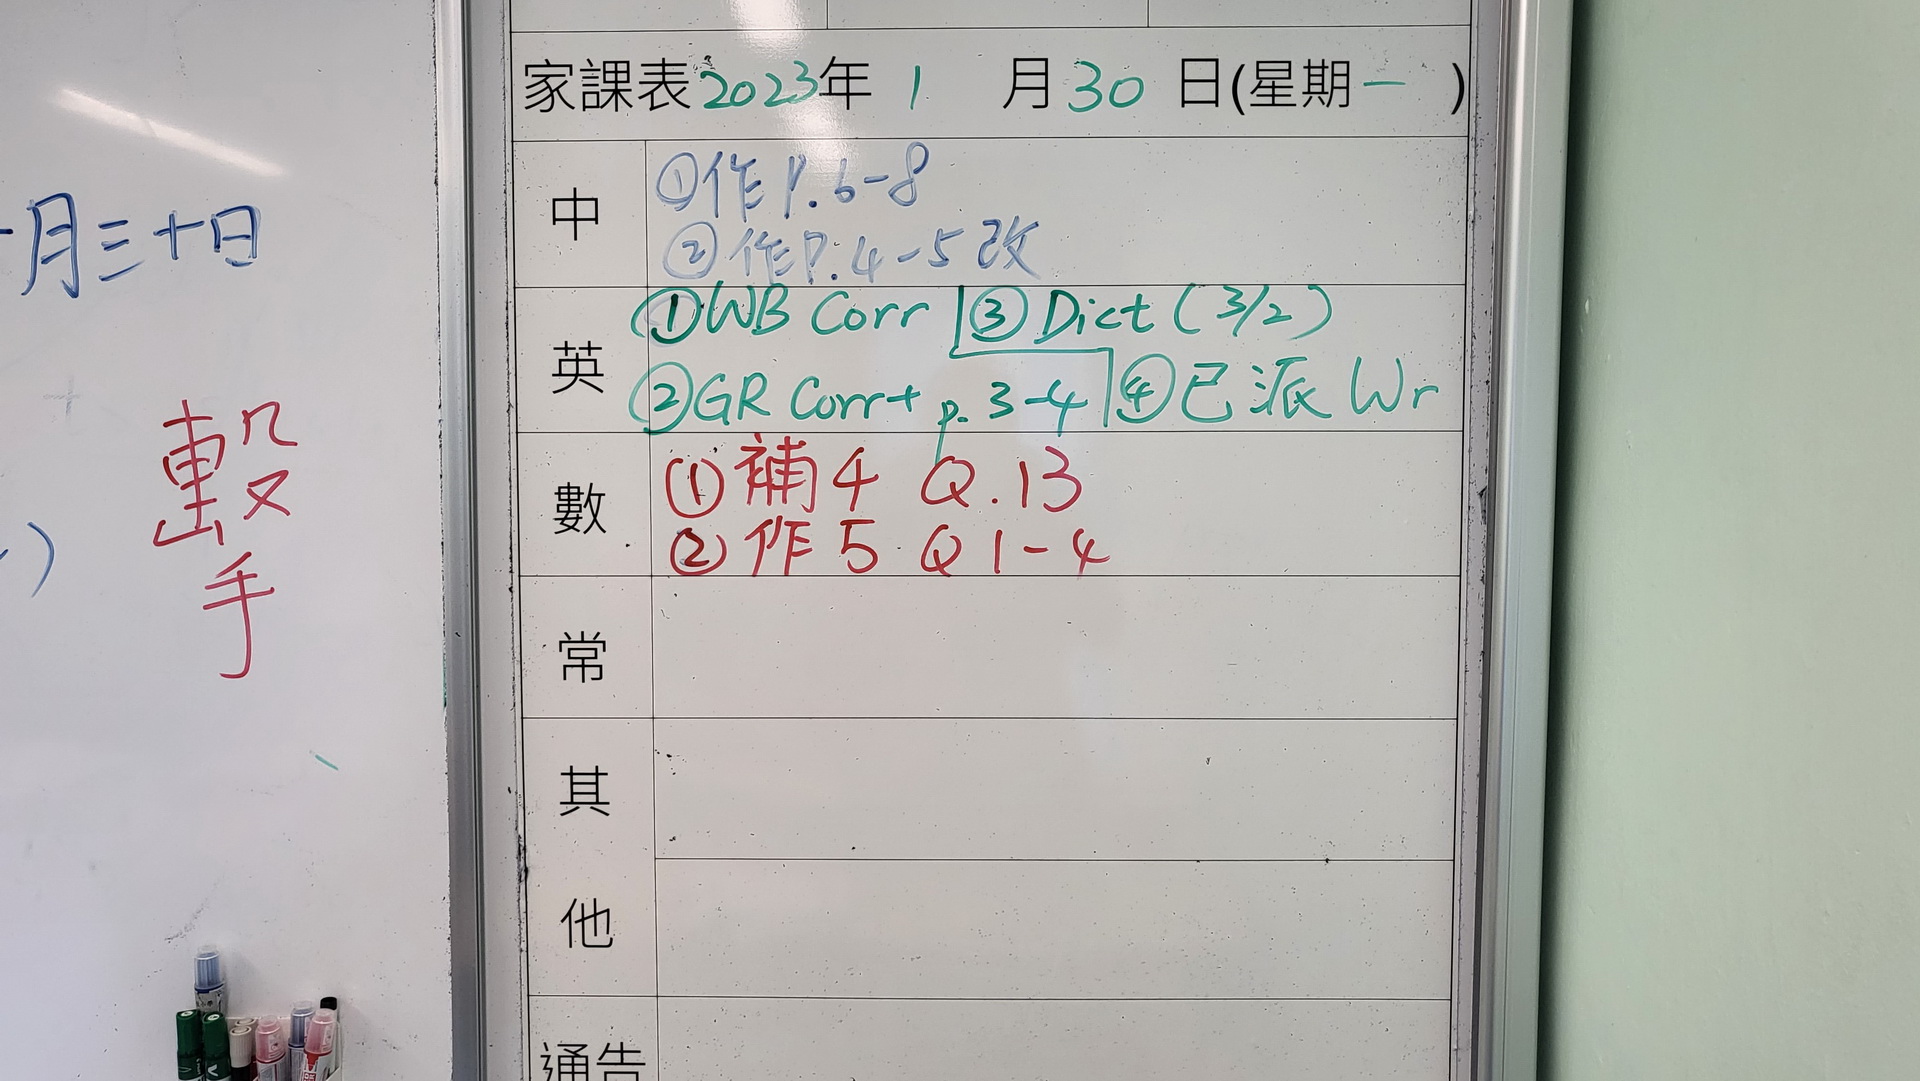 月三十日
擊
手
家課表2023年 1 月30日(星期一)
中
①作P.6-8
②作P.4-5改
英
①WB Corr ③Dict (3/2)
②GR Corr+ p.3-4 ④已派 Wr
數
①補4 Q.13
②作5 Q1-4
常
其
他
通告